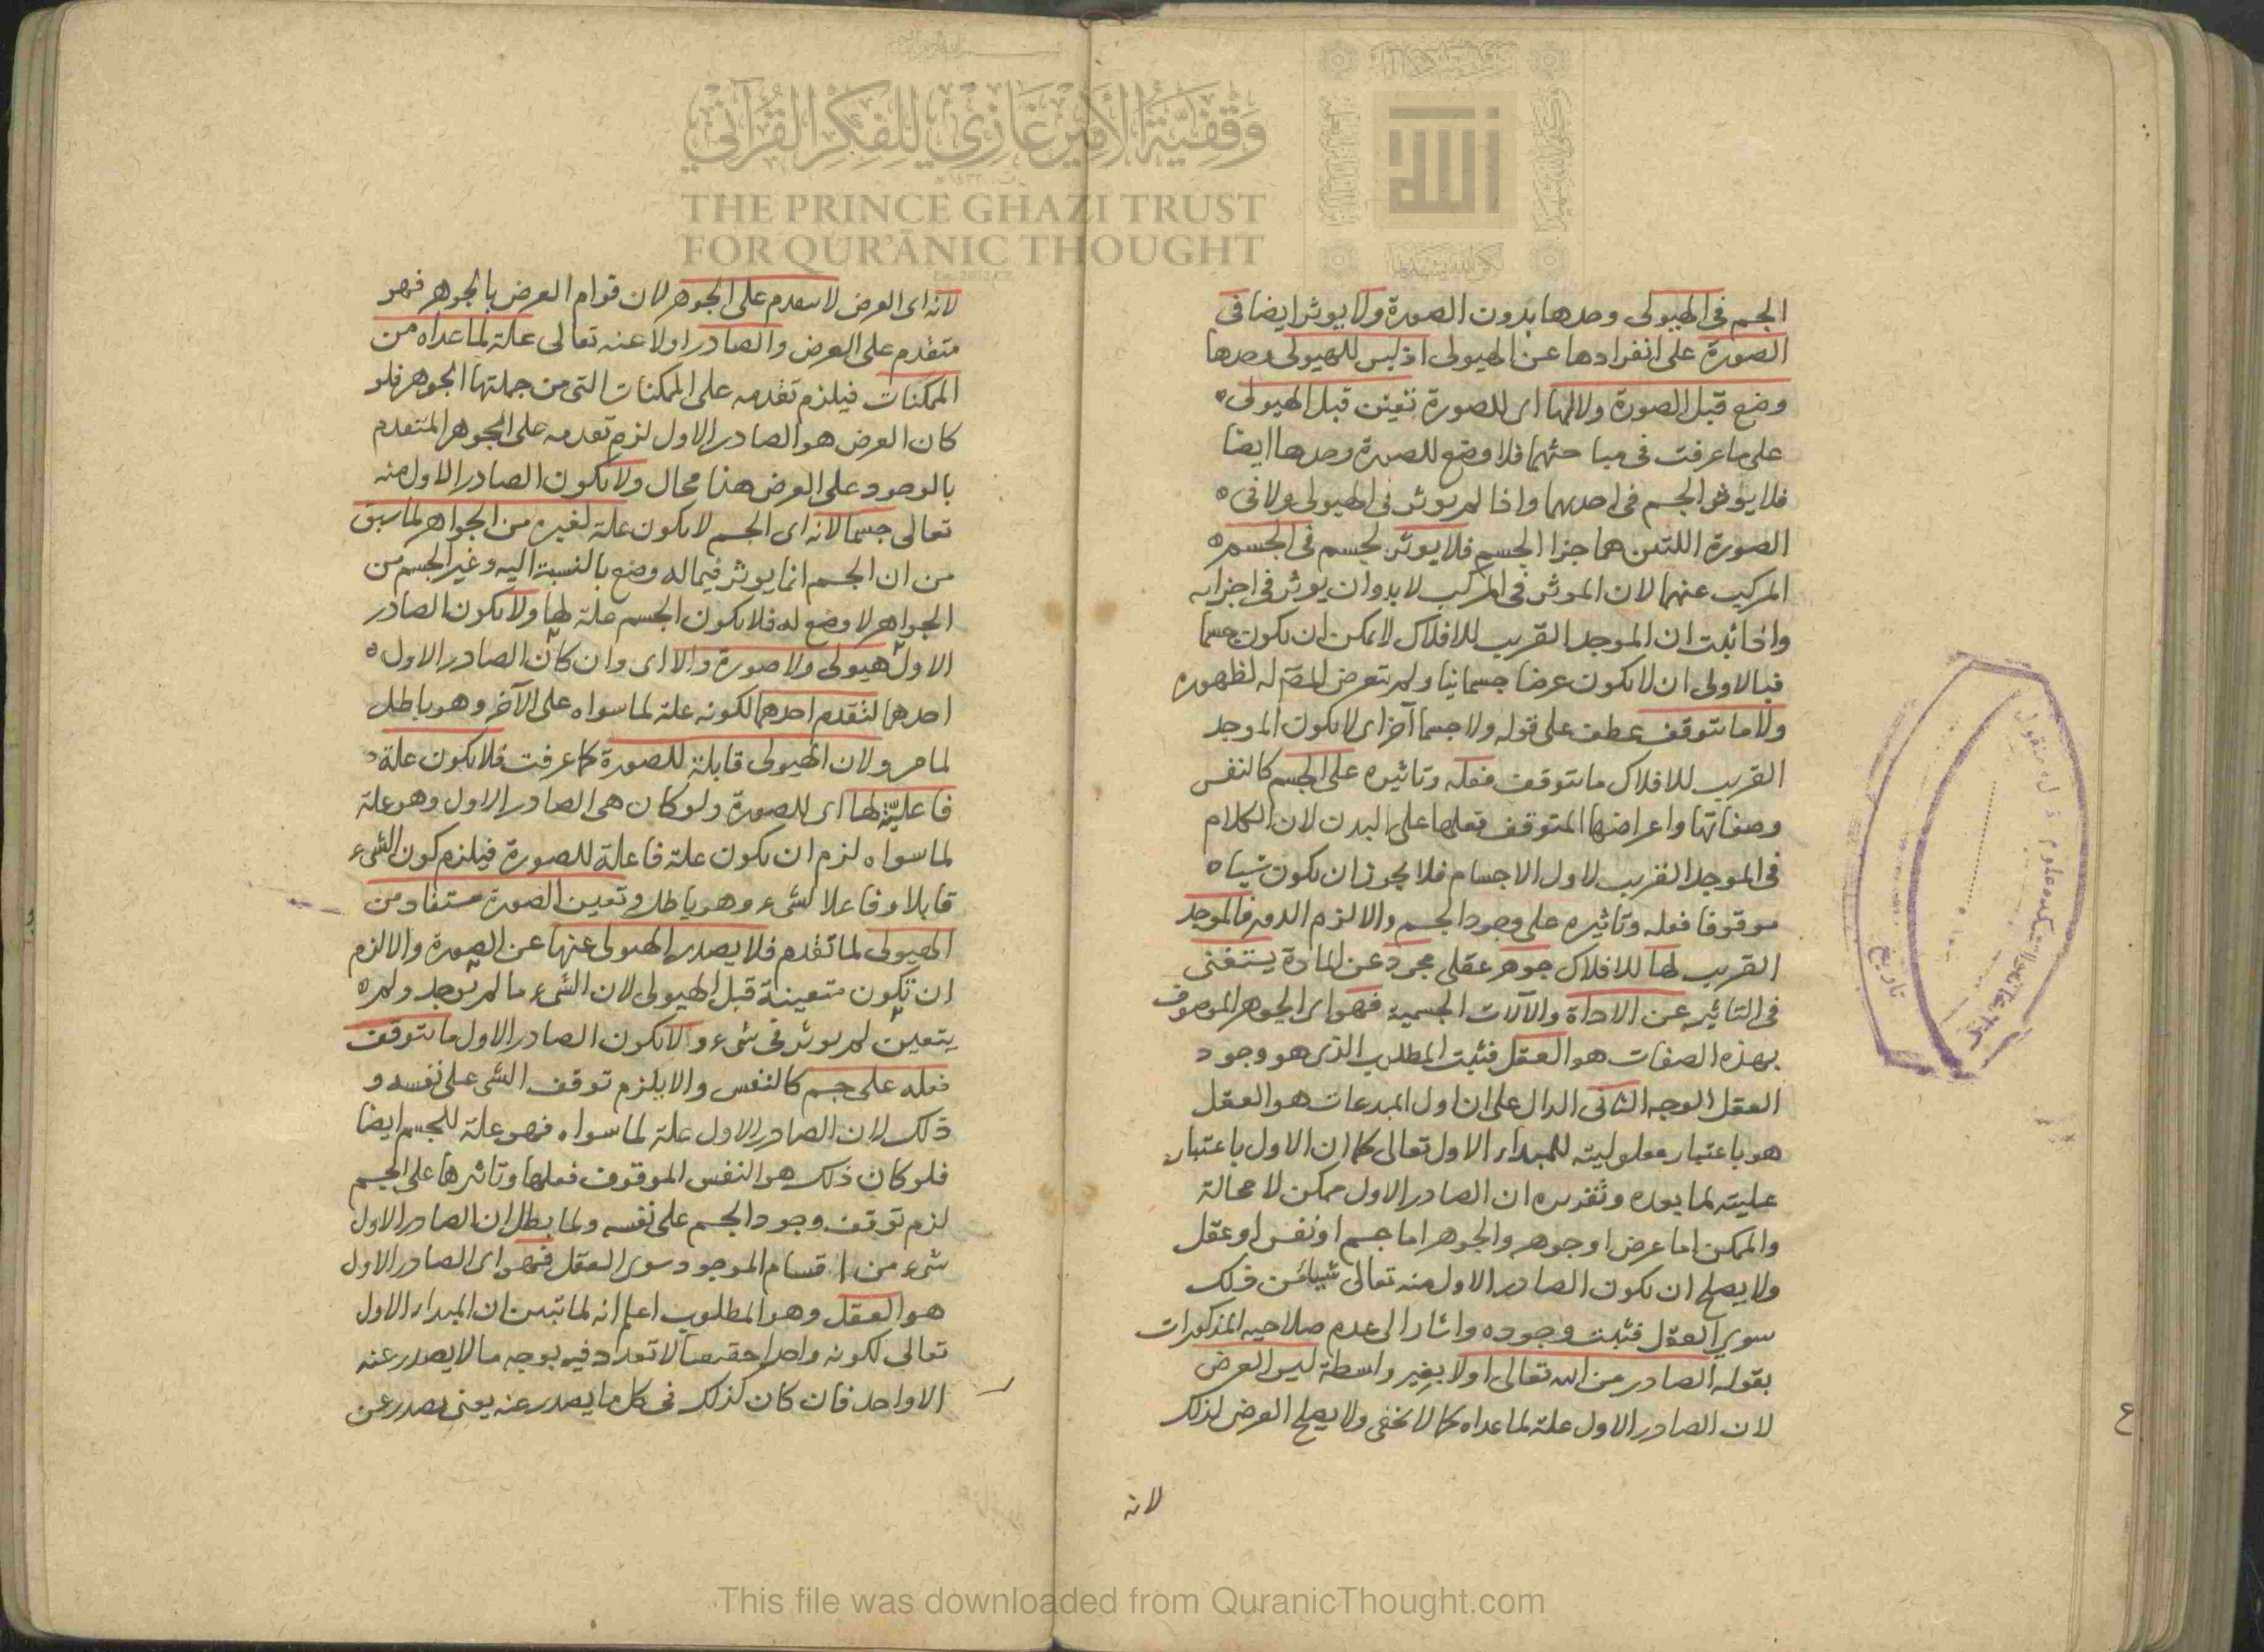 الجسم فى الهيولى وحدها بدون الصورة ولا يوثر ايضا فى
الصورة على انفرادها عن الهيولى اذ ليس للهيولى وحدها
وضع قبل الصورة ولا لها اى للصورة تعين قبل الهيولى
على ما عرفت فى مباحثهما فلا وضع للصورة وحدها ايضا
فلا يوثر الجسم فى احديهما واذا لم يوثر فى الهيولى ولا فى
الصورة اللتين هما جزا الجسم فلا يوثر لجسم فى الجسم
المركب عنهما لان الموثر فى المركب لا بد وان يوثر فى اجزايه
واذا ثبت ان الموجد القريب للافلاك لا يمكن ان يكون جسما
فبالاولى ان لا يكون عرضا جسمانيا ولم يتعرض المصَ له لظهوره
ولا ما يتوقف عطف على قوله ولا جسما آخر اى لا يكون الموجد
القريب للافلاك ما يتوقف فعله وتاثيره على الجسم كالنفس
وصفاتها واعراضها المتوقف فعلها على البدن لان الكلام
فى الموجد القريب لاول الاجسام فلا يجوز ان يكون شيا
موقوفا فعله وتاثيره على وجود الجسم والا لزم الدور فالموجد
القريب لها للافلاك جوهر عقلى مجرد عن المادة يستغنى
فى التاثير عن الاداة والآلات الجسمية فهو اى الجوهر الموصوف
بهذه الصفات هو العقل فثبت المطلوب الذى هو وجود
العقل الوجه الثانى الدال على ان اول المبدعات هو العقل
هو باعتبار معلوليته للمبداء الاول تعالى كما ان الاول باعتبار
عليته لما بعده وتقريره ان الصادر الاول ممكن لا محالة
والممكن اما عرض او جوهر والجوهر اما جسم او نفس او عقل
ولا يصلح ان يكون الصادر الاول منه تعالى شيا من ذلك
سوى العقل فثبت وجوده واشار الى عدم صلاحيه المذكورات
بقوله الصادر من الله تعالى اولا بغير واسطة ليس العرض
لان الصادر الاول علة لما عداه كما لا يخفى ولا يصلح العرض لذلك
لانه
لانه اى العرض لا يتقدم على الجوهر لان قوام العرض بالجوهر فهو
متقدم على العرض والصادر اولا عنه تعالى علة لما عداه من
الممكنات فيلزم تقدمه على الممكنات التى من جملتها الجوهر فلو
كان العرض هو الصادر الاول لزم تقدمه على الجوهر المتقدم
بالوجود على العرض هذا محال ولا يكون الصادر الاول منه
تعالى جسما لانه اى الجسم لا يكون علة لغيره من الجواهر لما سبق
من ان الجسم انما يوثر فيما له وضع بالنسبة اليه وغير الجسم من
الجواهر لا وضع له فلا يكون الجسم علة لها ولا يكون الصادر
الاول هيولى ولا صورة والا اى وان كان الصادر الاول
احدهما لتقدم احدهما لكونه علة لما سواه على الآخر وهو باطل
لما مر ولان الهيولى قابلة للصورة كما عرفت فلا يكون علة
فاعلية لها اى للصورة ولو كان هى الصادر الاول وهو علة
لما سواه لزم ان يكون علة فاعلة للصورة فيلزم كون الشىء
قابلا وفاعلا لشىء وهو باطل وتعين الصورة مستفاد من
الهيولى لما تقدم فلا يصدر الهيولى عنها عن الصورة والا لزم
ان تكون متعينة قبل الهيولى لان الشىء ما لم يوجد ولم
يتعين لم يوثر فى شىء ولا يكون الصادر الاول ما يتوقف
فعله على جسم كالنفس والا يلزم توقف الشى على نفسه و
ذلك لان الصادر الاول علة لما سواه فهو علة للجسم ايضا
فلو كان ذلك هو النفس الموقوف فعلها وتاثرها على الجسم
لزم توقف وجود الجسم على نفسه ولما بطل ان الصادر الاول
شىء من اقسام الموجود سوى العقل فهو اى الصادر الاول
هو العقل وهو المطلوب اعلم انه لما تبين ان المبداء الاول
تعالى لكونه واحدا حقيقيا لا تعدد فيه بوجه ما لا يصدر عنه
الا واحد فان كان كذلك فى كل ما يصدر عنه يعنى يصدر عن
وقفية الأمير غازي للفكر القرآني
THE PRINCE GHAZI TRUST
FOR QUR'ĀNIC THOUGHT
الله
تاريخ
This file was downloaded from QuranicThought.com